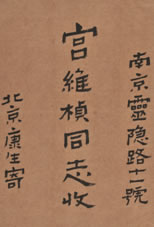 南京靈隐路十一號
宫維楨同志收
北京康生寄